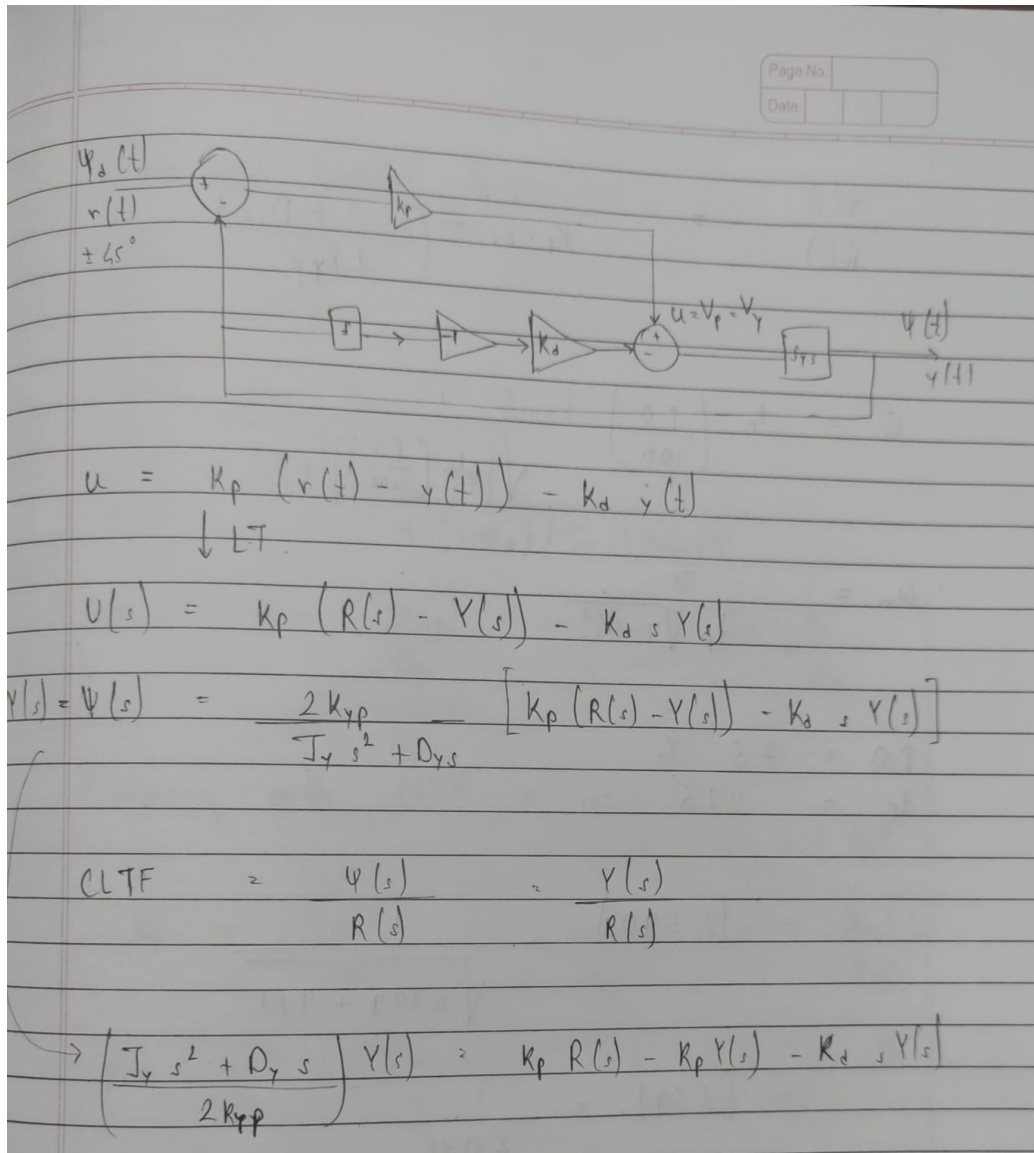 Page No.
Date
Ψd (t)
r(t)
± 45°
+
-
Kp
s
-1
Kd
+
-
u = Vp = Vy
sys
Ψ(t)
y(t)
u = Kp (r(t) - y(t)) - Kd ẏ(t)
↓ LT
U(s) = Kp (R(s) - Y(s)) - Kd s Y(s)
Y(s) = Ψ(s) = 2 Kyp / (Jy s² + Dy s) [Kp (R(s) - Y(s)) - Kd s Y(s)]
CLTF = Ψ(s) / R(s) = Y(s) / R(s)
→ (Jy s² + Dy s / 2 Kyp) Y(s) = Kp R(s) - Kp Y(s) - Kd s Y(s)